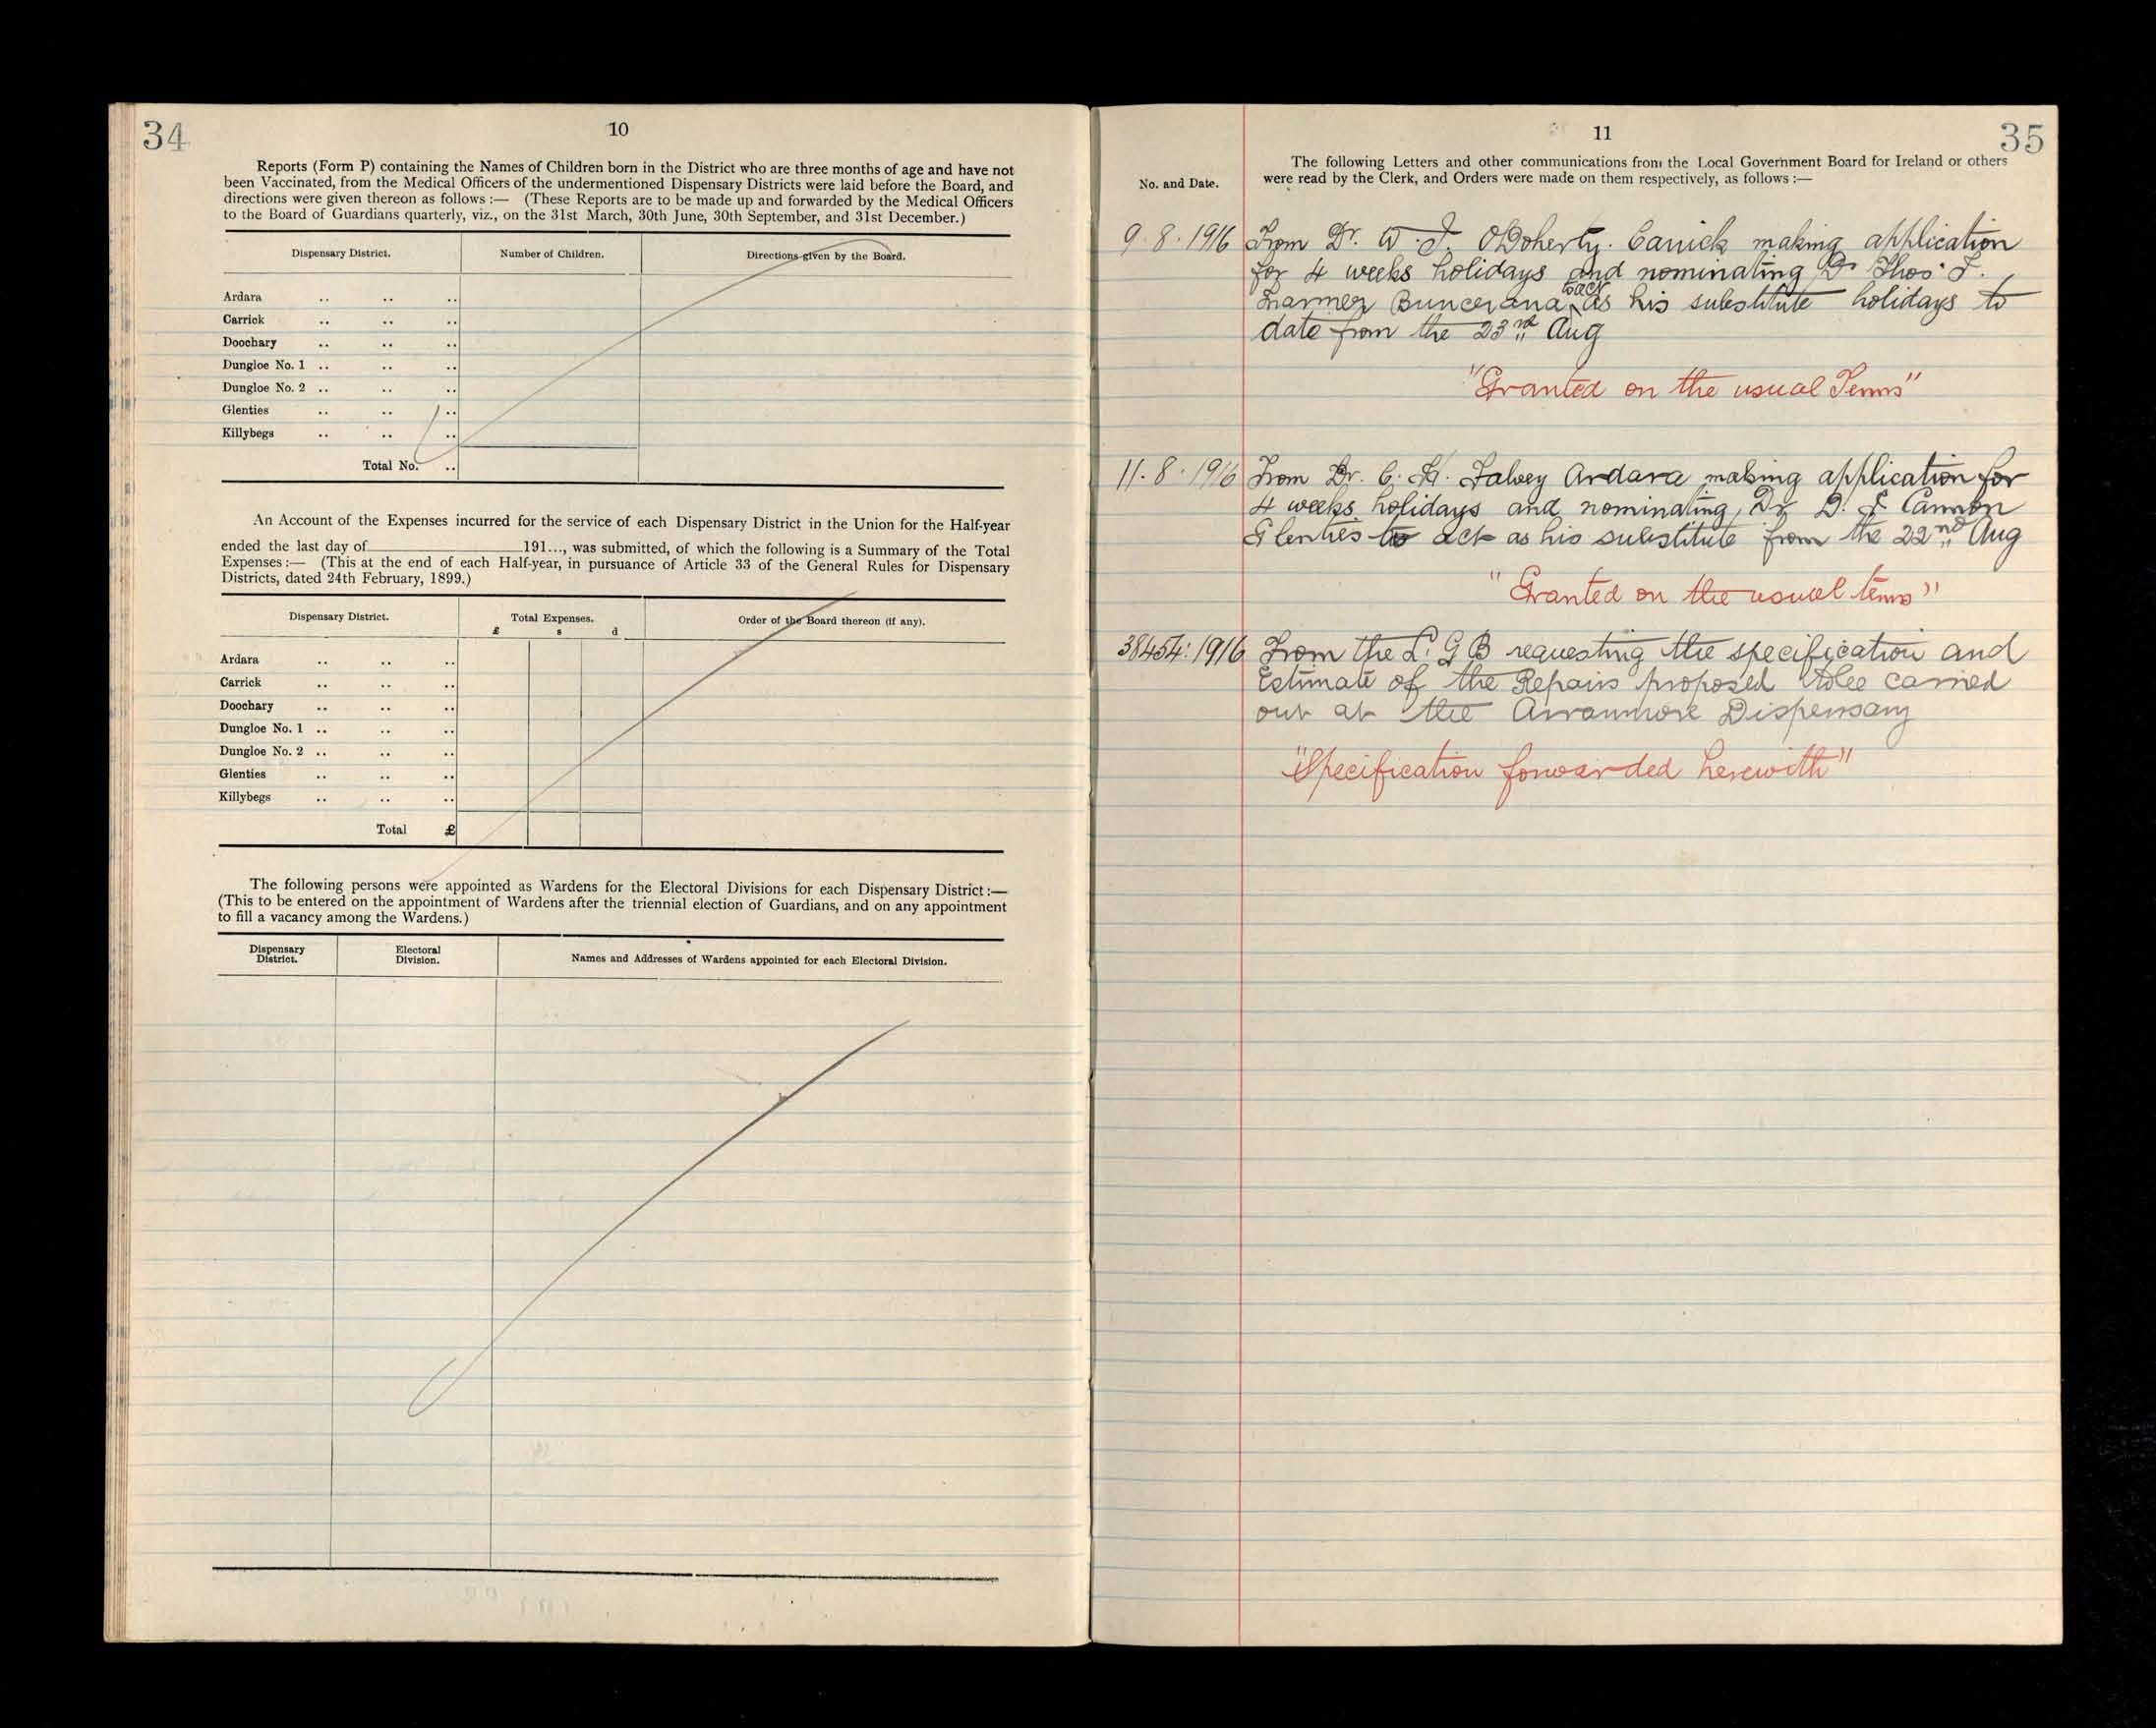 34
10
Reports (Form P) containing the Names of Children born in the District who are three months of age and have not
been Vaccinated, from the Medical Officers of the undermentioned Dispensary Districts were laid before the Board, and
directions were given thereon as follows :— (These Reports are to be made up and forwarded by the Medical Officers
to the Board of Guardians quarterly, viz., on the 31st March, 30th June, 30th September, and 31st December.)
Dispensary District. Number of Children. Directions given by the Board.
Ardara .. .. ..
Carrick .. .. ..
Doochary .. .. ..
Dungloe No. 1 .. .. ..
Dungloe No. 2 .. .. ..
Glenties .. .. ..
Killybegs .. .. ..
Total No. ..
An Account of the Expenses incurred for the service of each Dispensary District in the Union for the Half-year
ended the last day of 191..., was submitted, of which the following is a Summary of the Total
Expenses :— (This at the end of each Half-year, in pursuance of Article 33 of the General Rules for Dispensary
Districts, dated 24th February, 1899.)
Dispensary District. Total Expenses. Order of the Board thereon (if any).
£ s d
Ardara .. .. ..
Carrick .. .. ..
Doochary .. .. ..
Dungloe No. 1 .. .. ..
Dungloe No. 2 .. .. ..
Glenties .. .. ..
Killybegs .. .. ..
Total £
The following persons were appointed as Wardens for the Electoral Divisions for each Dispensary District :—
(This to be entered on the appointment of Wardens after the triennial election of Guardians, and on any appointment
to fill a vacancy among the Wardens.)
Dispensary District. Electoral Division. Names and Addresses of Wardens appointed for each Electoral Division.
11
35
The following Letters and other communications from the Local Government Board for Ireland or others
No. and Date. were read by the Clerk, and Orders were made on them respectively, as follows :—
9.8.1916 From Dr. W. J. ODoherty. Carrick making application
for 4 weeks holidays and nominating Dr Thos. F.
Buncrana as his substitute holidays to
date from the 23rd Aug
"Granted on the usual Terms"
11.8.1916 From Dr. C. H. Falvey Ardara making application for
4 weeks holidays and nominating Dr D. F Cannon
Glenties to act as his substitute from the 22nd Aug
"Granted on the usual terms"
38454:1916 From the L. G B requesting the specification and
Estimate of the Repairs proposed tobe carried
out at the Arranmore Dispensary
"Specification forwarded herewith"